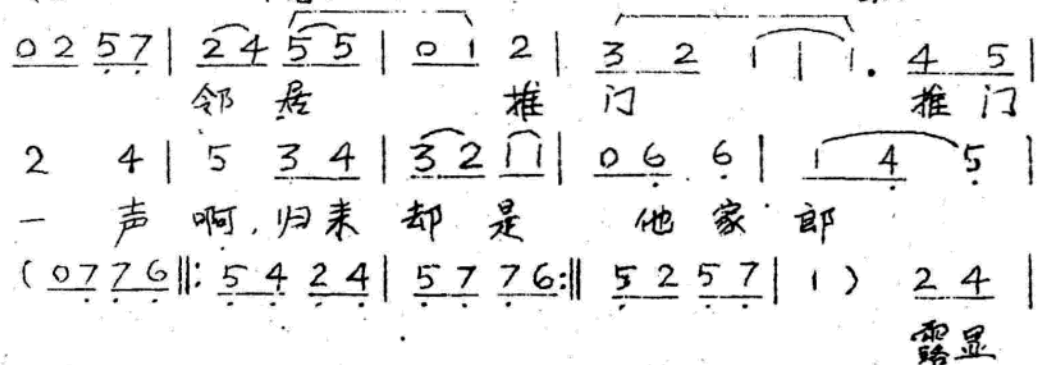 0 2 5 7 | 2 4 5 5 | 0 1 2 | 3 2 1 | 1. 4 5 |
邻居 推门 推门
2 4 | 5 3 4 | 3 2 1 1 | 0 6 6 | 1 4 5 |
一声啊,归来却是 他家郎
( 0 7 7 6 ‖: 5 4 2 4 | 5 7 7 6 :‖ 5 2 5 7 | 1 ) 2 4 |
露显